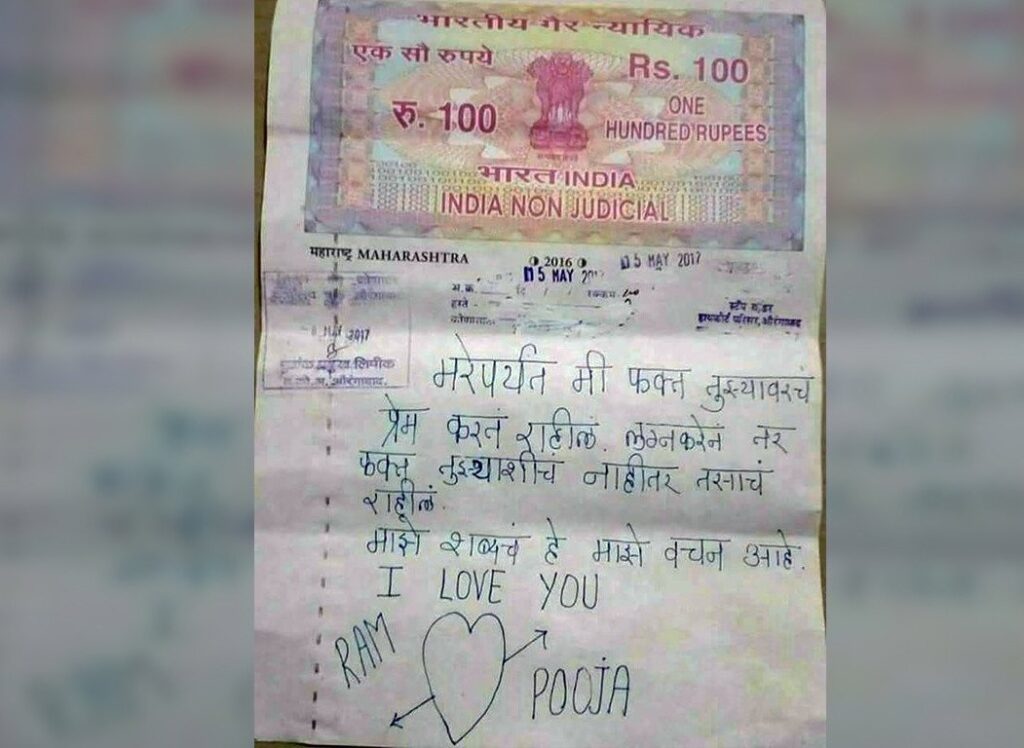 भारतीय गैर न्यायिक
एक सौ रुपये
Rs. 100
रु. 100
ONE
HUNDRED RUPEES
भारत INDIA
INDIA NON JUDICIAL
महाराष्ट्र MAHARASHTRA
2016
15 MAY 2017
15 MAY
अ.क्र.
रक्कम
हस्ते -
हायकोर्ट परिसर, औरंगाबाद
MAY 2017
लिपीक
औरंगाबाद.
मरेपर्यंत मी फक्त तुझ्यावरचं
प्रेम करतं राहीलं. लग्नकरेनं तर
फक्त तुझ्याशीचं नाहीतर तसाचं
राहीलं.
माझे शब्दचं हे माझे वचन आहे.
I LOVE YOU
RAM
POOJA